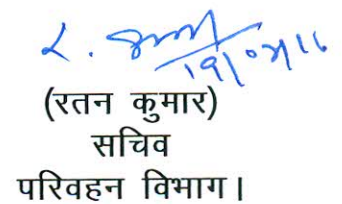 19/07/16
(रतन कुमार)
सचिव
परिवहन विभाग।